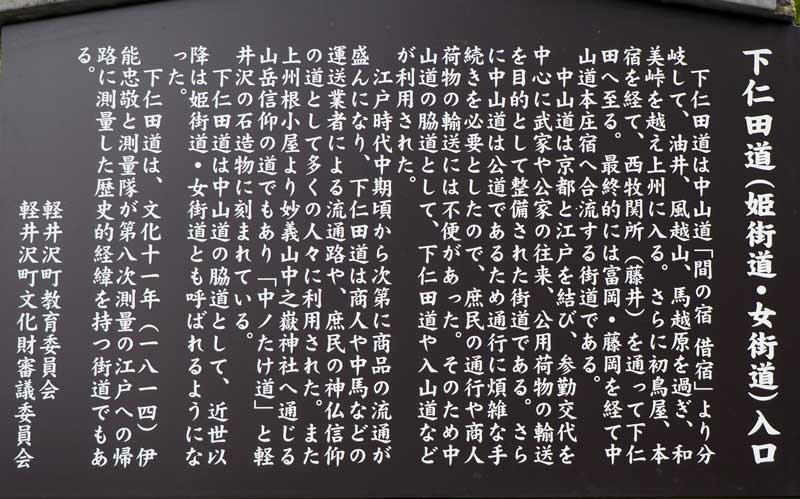 下仁田道(姫街道・女街道)入口
下仁田道は中山道「間の宿 借宿」より分
岐して、油井、風越山、馬越原を過ぎ、和
美峠を越え上州に入る。さらに初鳥屋、本
宿を経て、西牧関所(藤井)を通って下仁
田へ至る。最終的には富岡・藤岡を経て中
山道本庄宿へ合流する街道である。
中山道は京都と江戸を結び、参勤交代を
中心に武家や公家の往来、公用荷物の輸送
を目的として整備された街道である。さら
に中山道は公道であるため通行に煩雑な手
続きを必要としたので、庶民の通行や商人
荷物の輸送には不便があった。そのため中
山道の脇道として、下仁田道や入山道など
が利用された。
江戸時代中期頃から次第に商品の流通が
盛んになり、下仁田道は商人や中馬などの
運送業者による流通路や、庶民の神仏信仰
の道として多くの人々に利用された。また
上州根小屋より妙義山中之嶽神社へ通じる
山岳信仰の道でもあり「中ノたけ道」と軽
井沢の石造物に刻まれている。
下仁田道は中山道の脇道として、近世以
降は姫街道・女街道とも呼ばれるようにな
った。
下仁田道は、文化十一年(一八一四)伊
能忠敬と測量隊が第八次測量の江戸への帰
路に測量した歴史的経緯を持つ街道でもあ
る。
軽井沢町教育委員会
軽井沢町文化財審議委員会